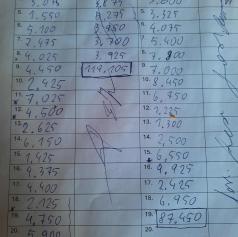 5. 1.550 8.275 5. 2.325
6. 5.100 8.950 6. 4.075
7. 2.475 3.700 7. 5.400
8. 4.025 3.925 8.
9. 4.450 111.105 9. 7.000
10. 2.425 10. 8.450
11. 7.025 11. 6.750
12. 4.500 12. 2.225
13. 2.625 13. 1.300
14. 6.150 14. 2.500
15. 1.425 15. 6.550
16. 4.375 16. 9.925
17. 4.400 17. 2.425
18. 2.125 18. 6.950
19. 4.750 19. 87.450
20. 5.900 20.